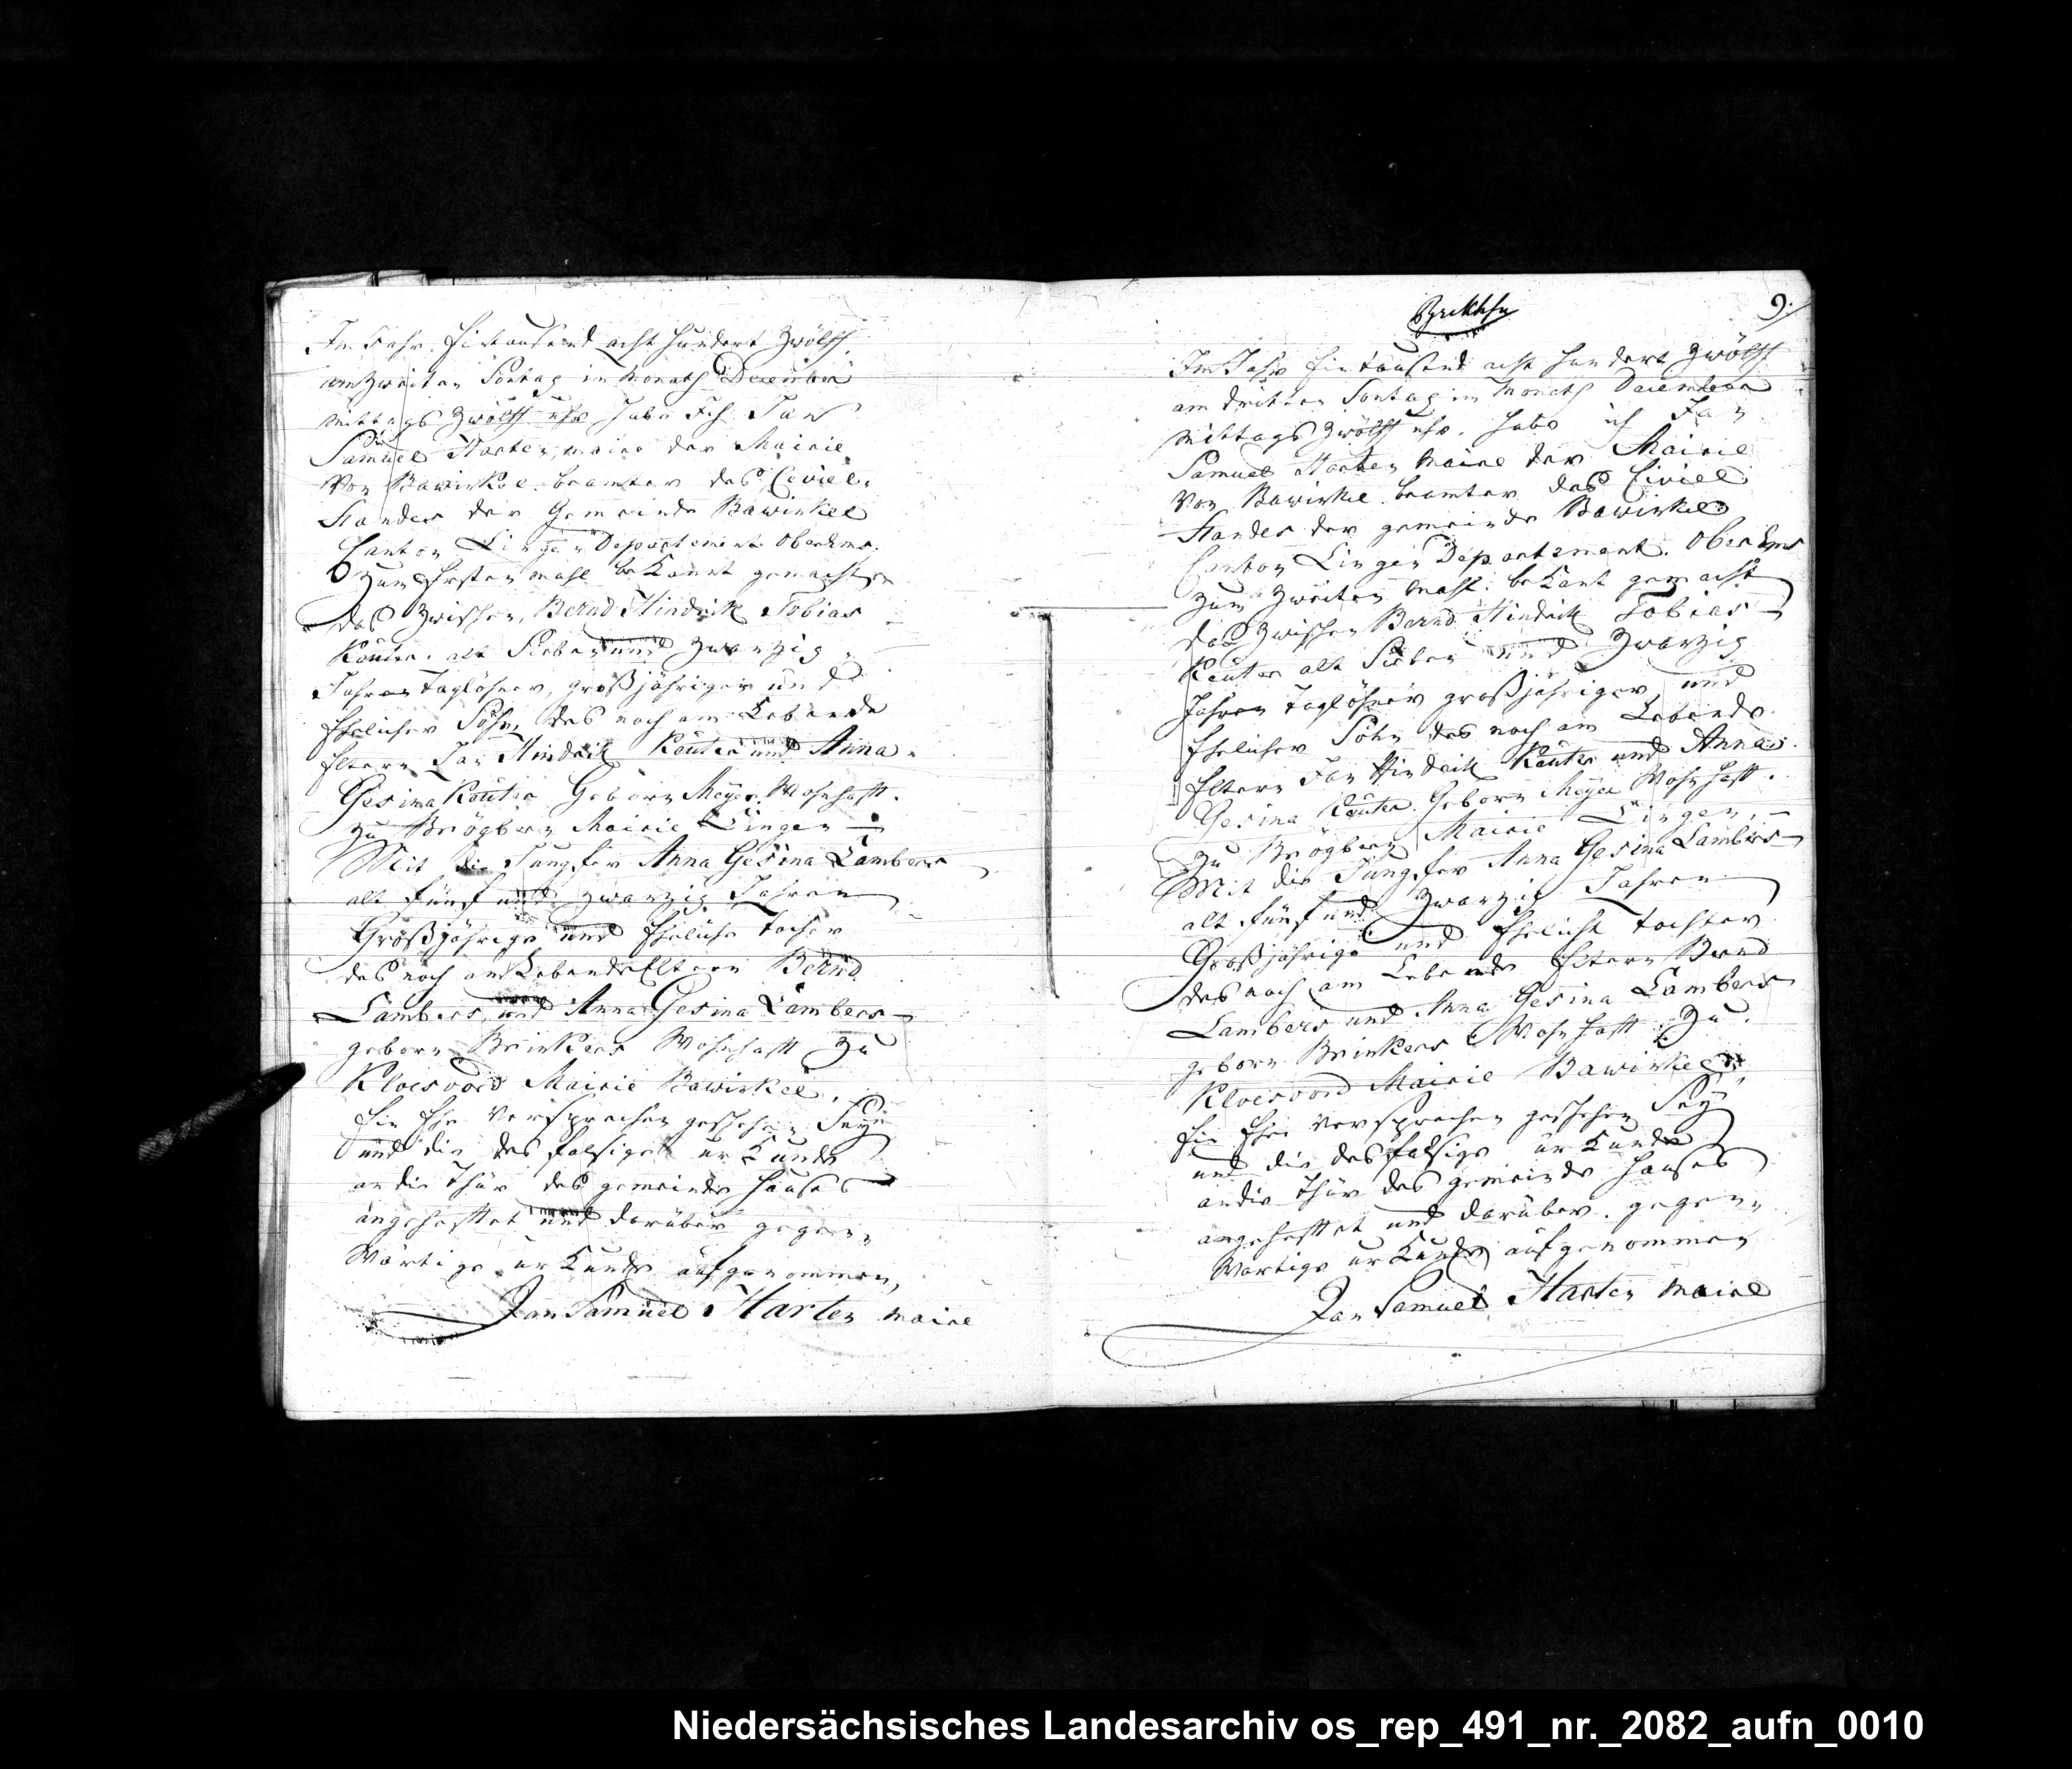 Im Jahr Eintausend acht hundert Zwölff
am zweiten Sontag im Monath December
mittags Zwölff uhr habe Ich Jan
Samuel Harten, maire der Mairie
von Bawinkel beamter des Ceviel
Standes der Gemeinde Bawinkel
Canton Lingen Departement OberEms.
zum Ersten mahl bekannt gemacht
das zwischen, Bernd Hindrik Tobias
Käuter alt Sieben und zwanzig
Jahren Taglöhner, großjähriger und
Ehelicher Sohn, des noch am Lebende
Eltern Jan Hindrik Käuter und Anna
Gesina Käuter Geborn Meyer Wohnhafft
zu Brögbern Mairie Lingen
Mit die Jungfer Anna Gesina Lambers
alt fünf und zwanzig Jahren
Großjährige und Eheliche tochter
des noch am Lebende Eltern Bernd
Lambers, und Anna Gesina Lambers
geborn Brinkers Wohnhafft zu
Kloesvord Mairie Bawinkel,
Ein Ehe Versprechen geschehen Seyn
und die des falsige urkunde
an die Thür des gemeinde hauses
angehefftet und darüber gegen
Wärtige urkunde aufgenommen,
Jan Samuel Harten maire
9.
Im Jahr Eintausend acht hundert Zwölff
am dritten Sontag im Monath December
Mittags Zwölff uhr. habe ich Jan
Samuel Harten Maire der Mairie
Von Bawinkel beamter des Civiel
Standes der gemeinde Bawinkel
Canton Lingen Departement. OberEms
zum zweiten mahl bekant gemacht
das zwischen Bernd Hindrik Tobias
Käuter alt Sieben und zwanzig
Jahren Taglöhner großjähriger und
Ehelicher Sohn des noch am Lebende
Eltern Jan Hindrik Käuter und Anna
Gesina Käuter Geborn Meyer Wohnhafft.
zu Brögbern Mairie Lingen,
Mit die Jungfer Anna Gesina Lambers
alt fünf und zwanzig Jahren
Großjährige und Eheliche tochter
des noch am Lebende Eltern Bernd
Lambers und Anna Gesina Lambers
geborn Brinkers Wohnhafft zu
Kloesvord Mairie Bawinkel
Ein Ehe Versprechen geschehen Sey
und die des falsige urkunde
an die Thür des gemeinde hauses
angehefftet und darüber gegen
Wärtige urkunde aufgenommen
Jan Samuel Harten maire
Niedersächsisches Landesarchiv os_rep_491_nr._2082_aufn_0010